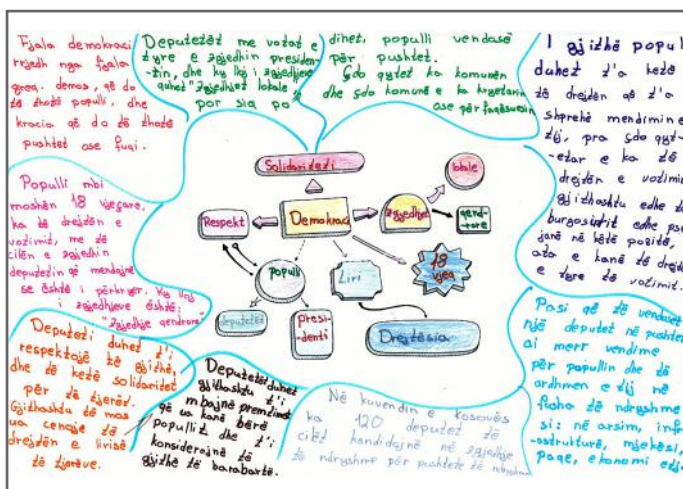 Fjala demokraci
rrjedh nga fjala
greq. demos, që do
të thotë populli, dhe
kracia që do të thotë
pushtet ose fuqi.
Deputetët me votat e
tyre e zgjedhin presiden-
-tin, dhe ky lloj i zgjedhjeve
quhet "zgjedhjet lokale"
por sia po
dihet, populli vendosë
për pushtet.
Çdo qytet ka komunën
dhe çdo komunë e ka kryetarin
ose përfaqësuesin
I gjithë popull
duhet t'a ketë
të drejtën që t'a
shprehë mendimin e
tij, pra çdo qyt-
-etar e ka të
drejtën e votimit
gjithashtu edhe të
burgosurit edhe pse
janë në këtë pozitë,
ata e kanë të drejtë
e tyre të votimit.
Populli mbi
moshën 18 vjeçare,
ka të drejtën e
votimit, me të
cilën e zgjedhin
deputetin që mendojnë
se është i përkryer. Ky lloj
i zgjedhjeve është:
"zgjedhje qendrore"
Solidariteti
Respekt
Demokraci
zgjedhjet
lokale
qend-
rore
populli
Liri
18
vjeç
deputetët
presi-
denti
Drejtësia
Deputeti duhet t'i
respektojë të gjithë,
dhe të ketë solidaritet
për të tjerët.
Gjithashtu të mos
ua cenojë të
drejtën e lirisë
të tjerëve.
Deputetët duhet
gjithashtu t'i
mbajnë premtimet
që ua kanë bërë
popullit dhe t'i
konsiderojnë të
gjithë të barabartë.
Në kuvendin e kosovës
ka 120 deputet të
cilët kandidojnë në zgjedhje
të ndryshme për pushtete të
Pasi që të vendoset
një deputet në pushtet
ai merr vendime
për popullin dhe të
ardhmen e tij në
fusha të ndryshme
si: në arsim, infr
-astrukturë, mjekësi,
paqe, ekonomi etj.